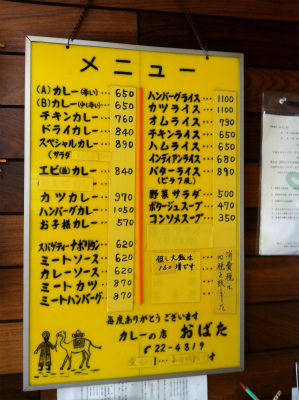 メニュー
(A)カレー(辛い)…650
(B)カレー(中辛い)650
チキンカレー…760
ドライカレー…840
スペシャルカレー…890
(サラダ
エビ(皿)カレー…840
カツカレー…970
ハンバーグカレー…1050
お子様カレー…570
スパゲティーナポリタン…620
ミートソース…620
カレーソース…620
ミートカツ…870
ミートハンバーグ…870
ハンバーグライス…1100
カツライス…1100
オムライス…790
チキンライス…650
ハムライス…650
インディアンライス…680
バターライス…890
(ピラフ風)
野菜サラダ…500
ポタージュスープ…470
コンソメスープ…350
但し大盛は
160増です
消費税は
毎度ありがとうございます
カレーの店 おばた
☎22-4819